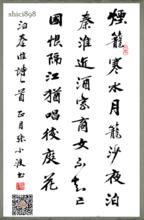 shici898
煙籠寒水月籠沙夜泊
秦淮近酒家商女不知亡
國恨隔江猶唱後庭花
泊秦淮詩一首